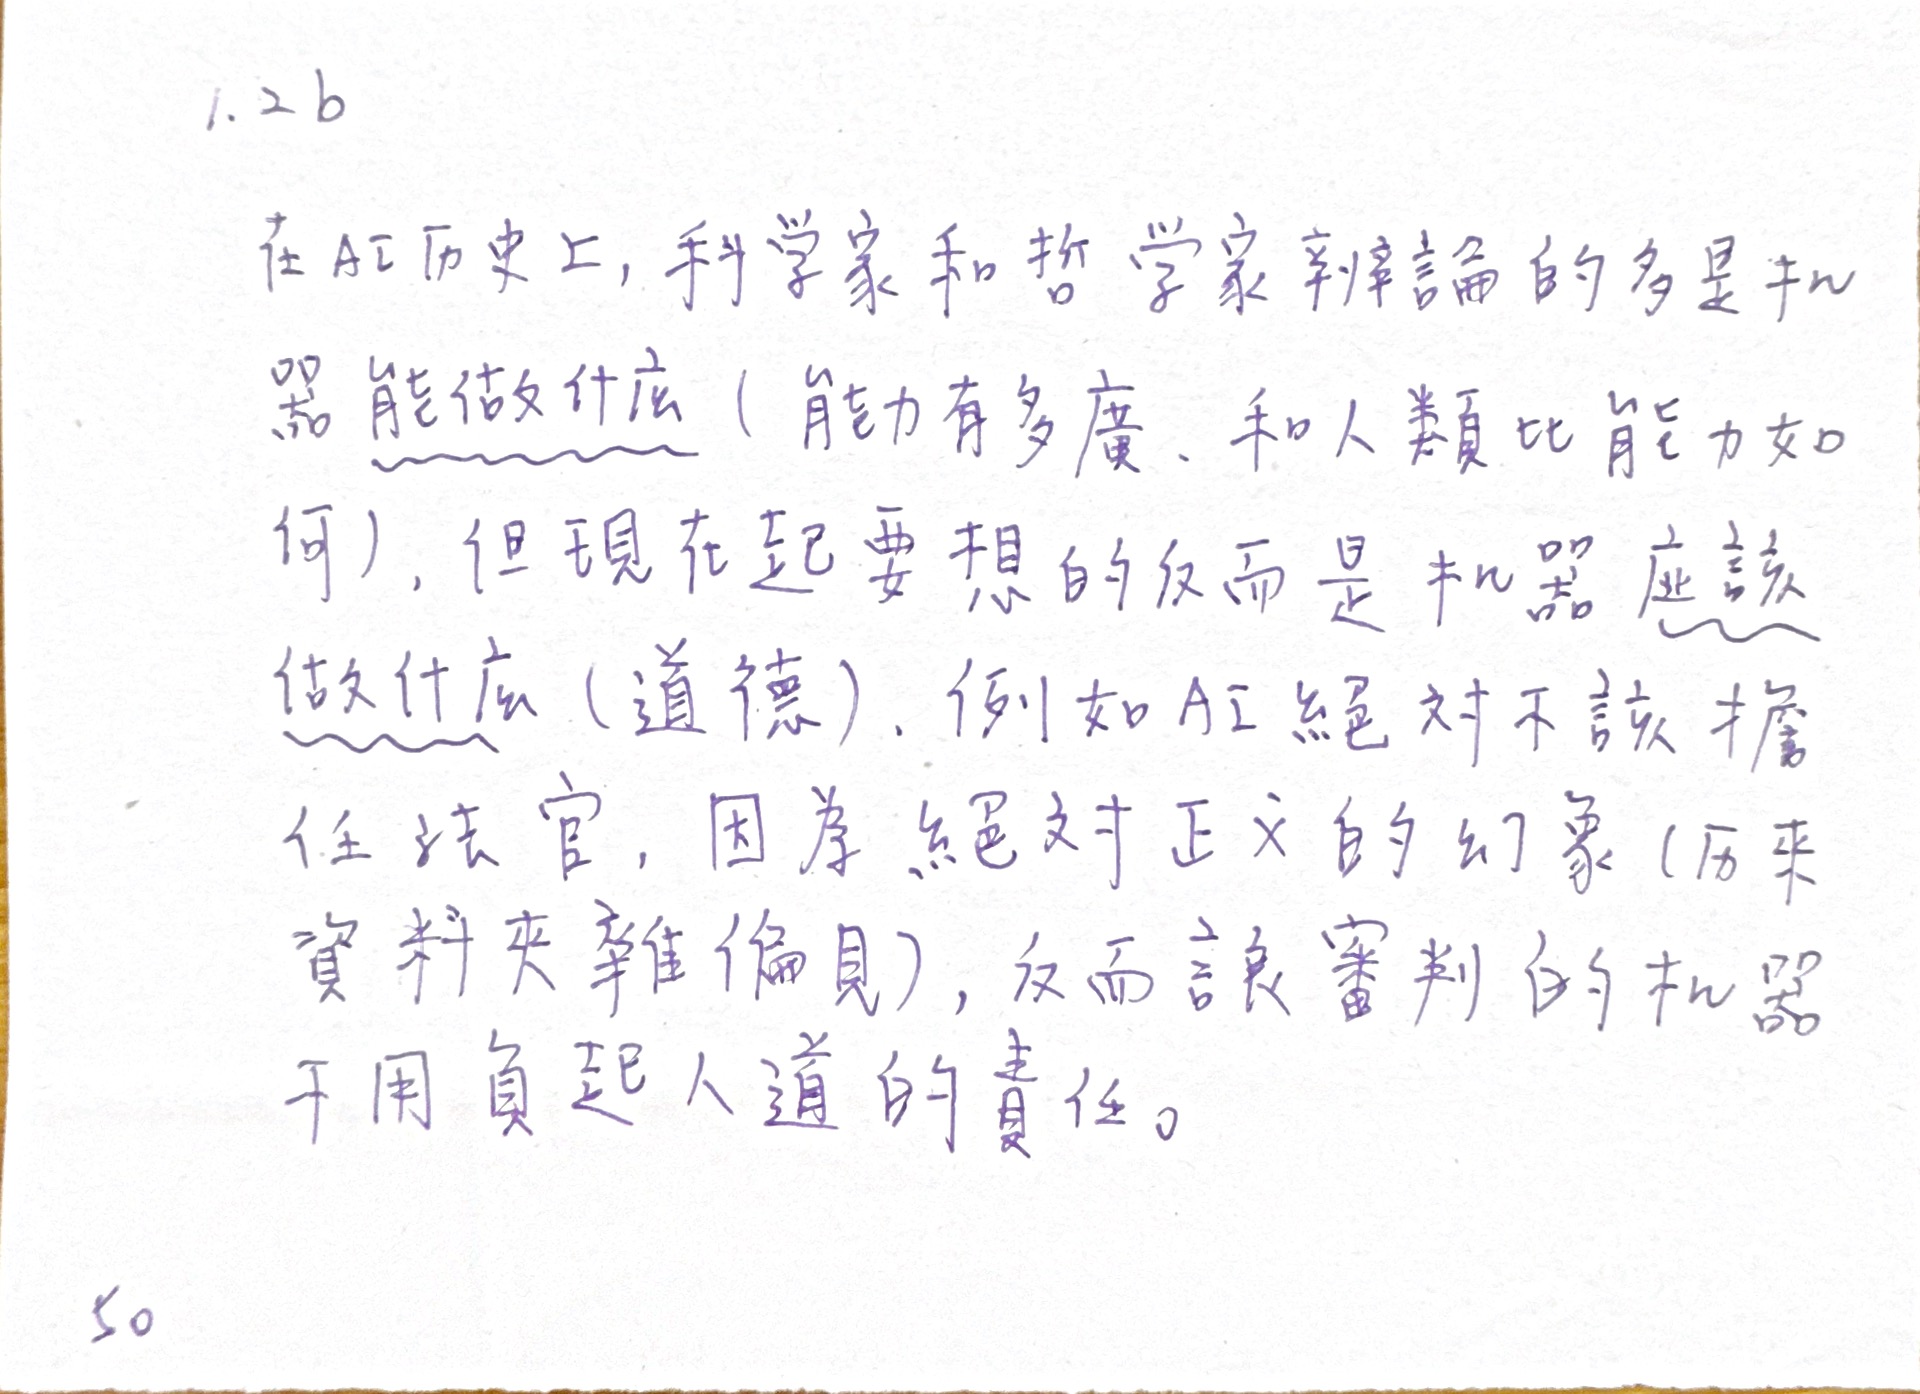 1.2b
在AI历史上，科学家和哲学家辩論的多是机
器能做什庅（能力有多廣、和人類比能力如
何），但現在起要想的反而是机器应該
做什庅（道德）、例如AI絕对不該擔
任法官，因為絕对正义的幻象（历来
資料夾雜偏見），反而讓審判的机器
不用負起人道的責任。
50